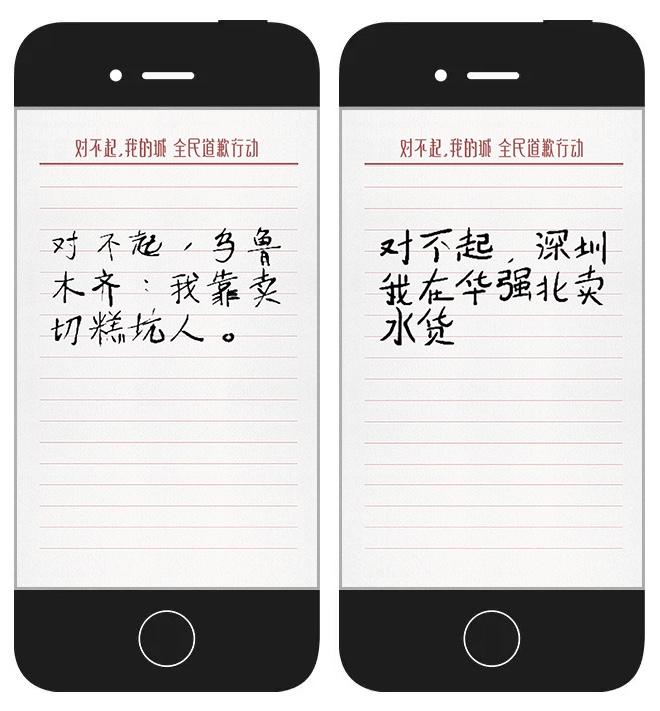 对不起,我的城 全民道歉行动
对不起，乌鲁
木齐：我靠卖
切糕坑人。
对不起,我的城 全民道歉行动
对不起，深圳
我在华强北卖
水货